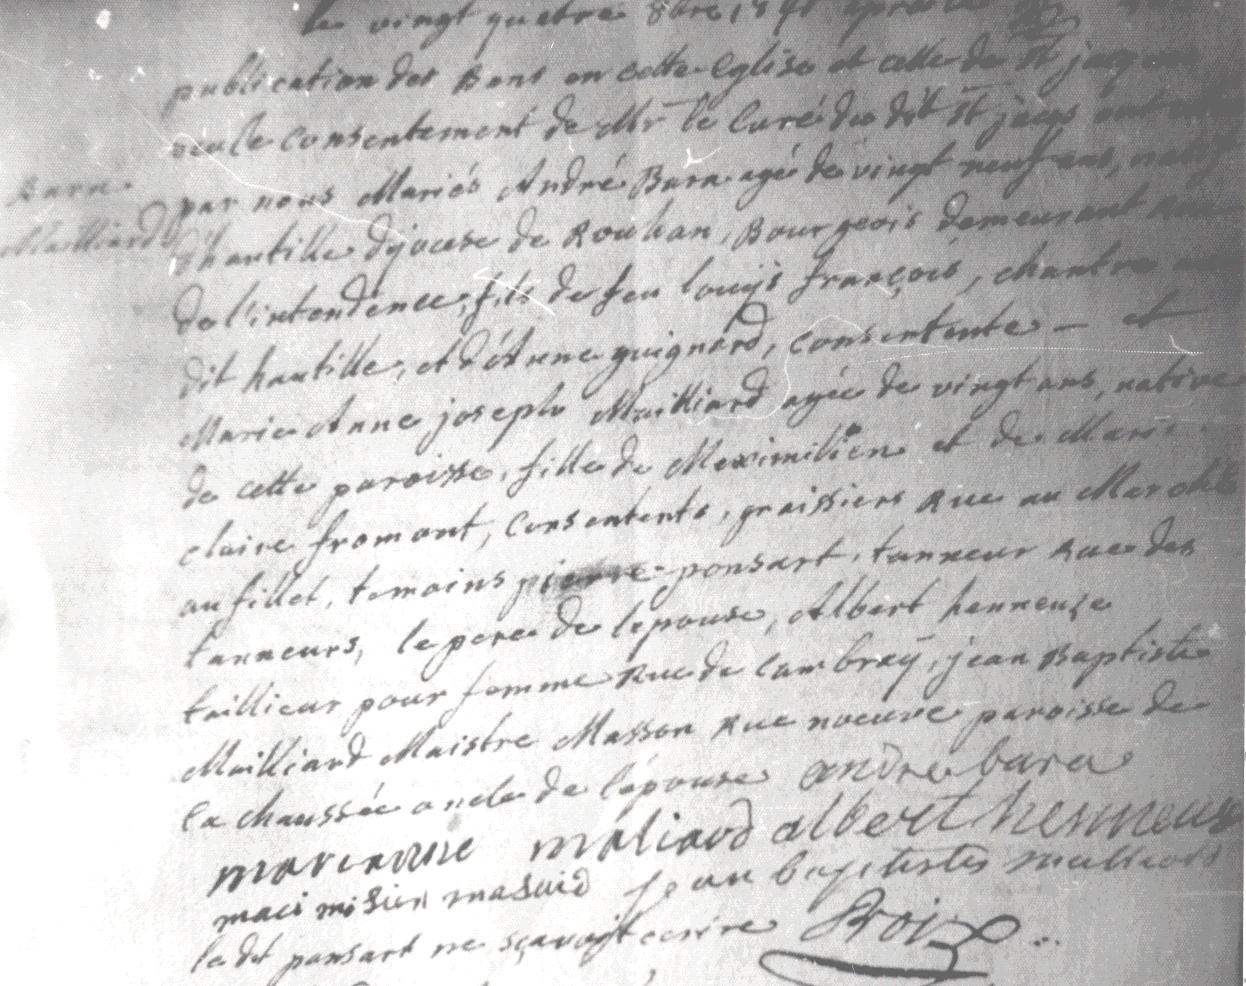 le vingt quatre 8bre après la
publication des Bans en cette eglise et celle de St jacques
seule consentement de Mr le Curé du dit St jacqs ont
par nous Mariés André Bara agé de vingt neuf ans, natif
Bara
Mailliard
d'hantille djocese de Rouhan, Bourgeois demeurant Rue
de l'intendence, fils de feu louijs françois, chantre
dit hautille, et d'Anne guignard, consentente - et
Marie Anne joseph Mailliard agée de vingt ans, native
de cette paroisse, fille de Meximilien et de Marie
claire fromont, consentents, graissiers Rue au Marché
au fillet, temoins pierre ponsart, tanneur Rue des
tanneurs, le pere de lepouse, Albert henneuze
taillieur pour femme Rue de Cambraÿ, jean Baptiste
Mailliard Maistre Masson Rue noeuve paroisse de
la chaussée oncle de lépouse andre bara
marianne maliard albert henneuse
macimisien maliard jean baptiste malliard
ledit ponsart ne sçavoit ecrire